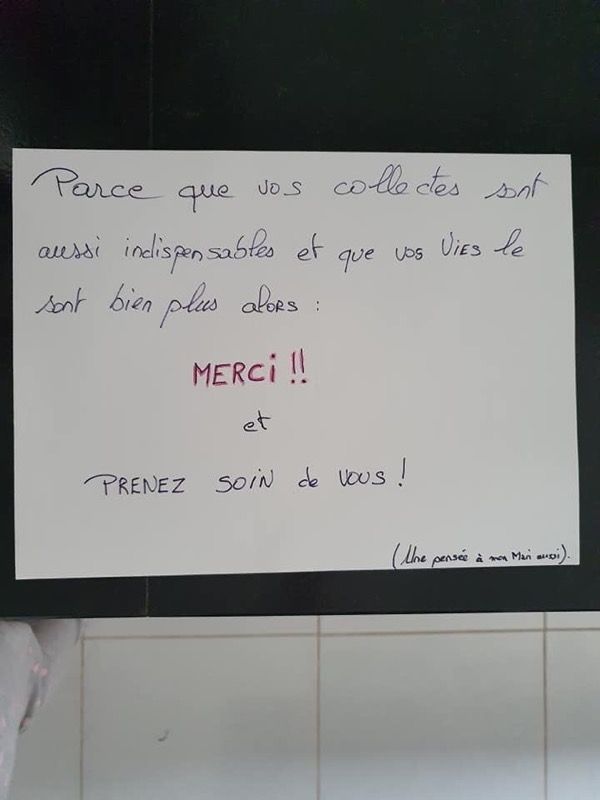 Parce que vos collectes sont
aussi indispensables et que vos Vies le
sont bien plus alors :
MERCi !!
et
PRENEZ SOIN de VOUS !
(Une pensée à mon Mari aussi).